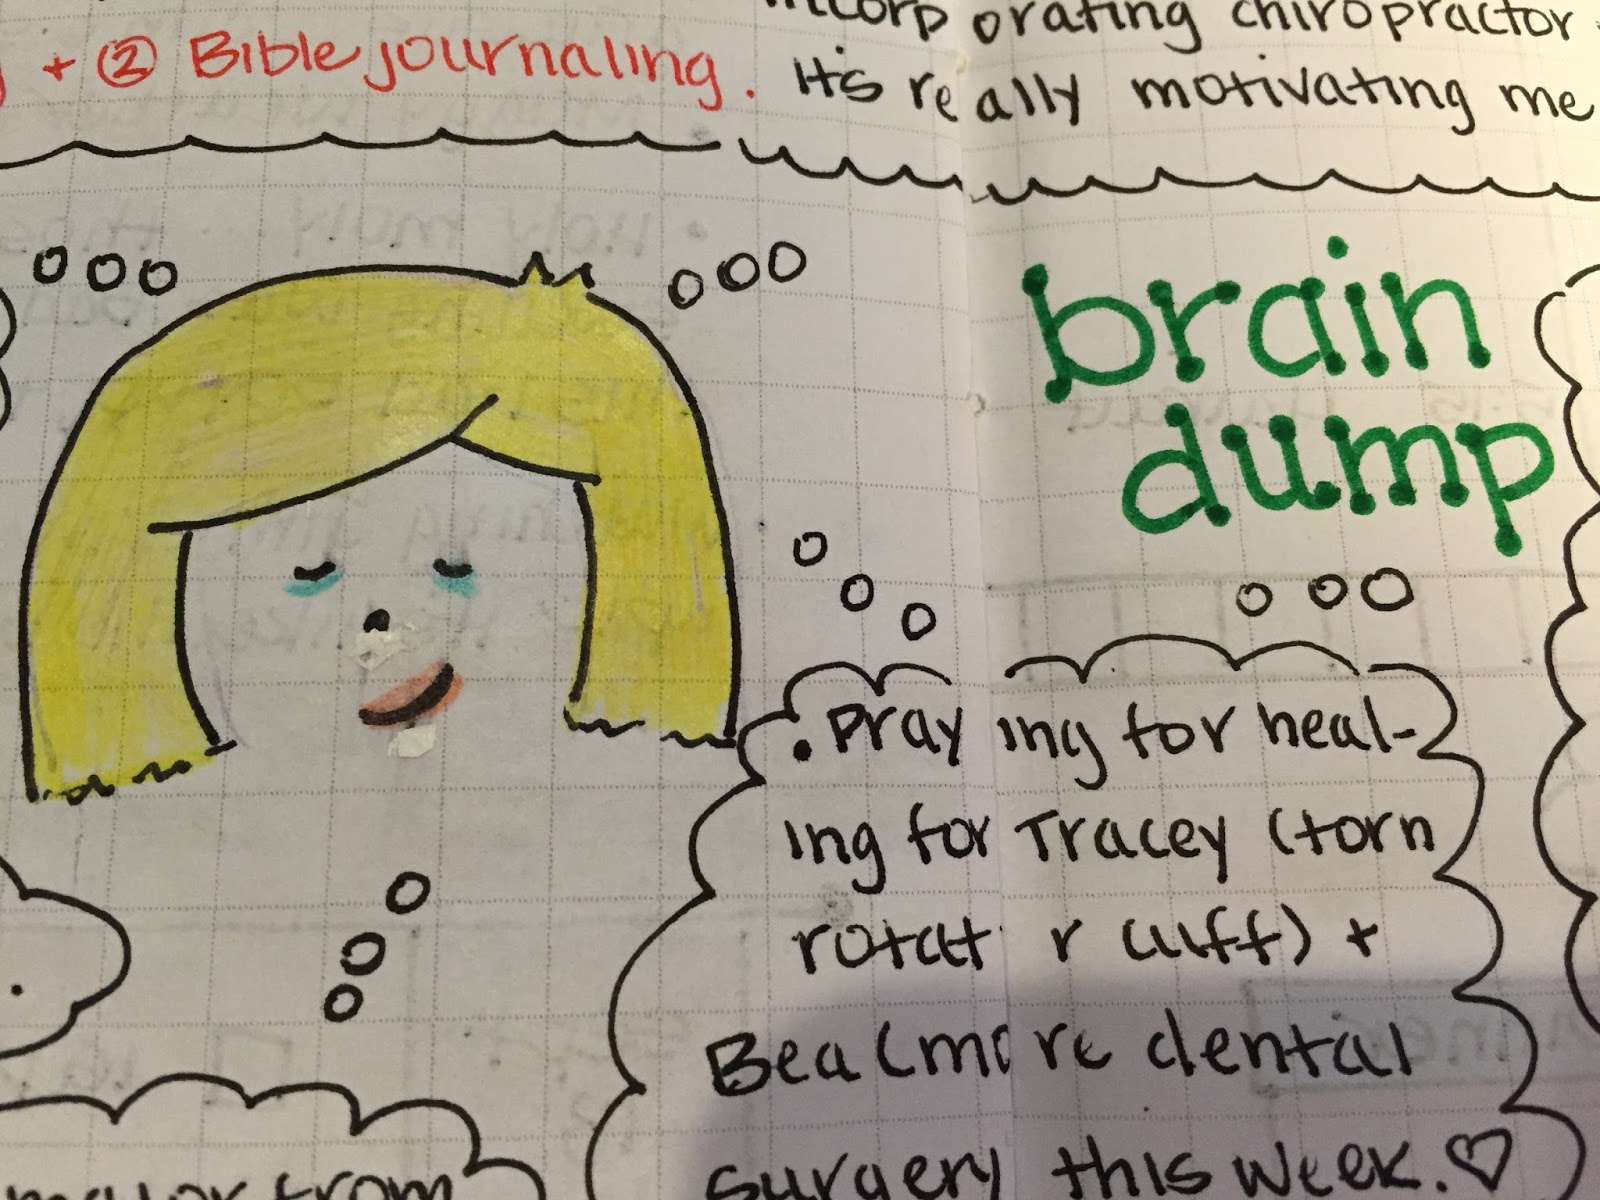 + ② Bible journaling.
incorporating chiropractor
It's really motivating me
brain
dump
• Praying for heal-
ing for Tracey (torn
rotator cuff) +
Bea (more dental
surgery this week. ♡
from